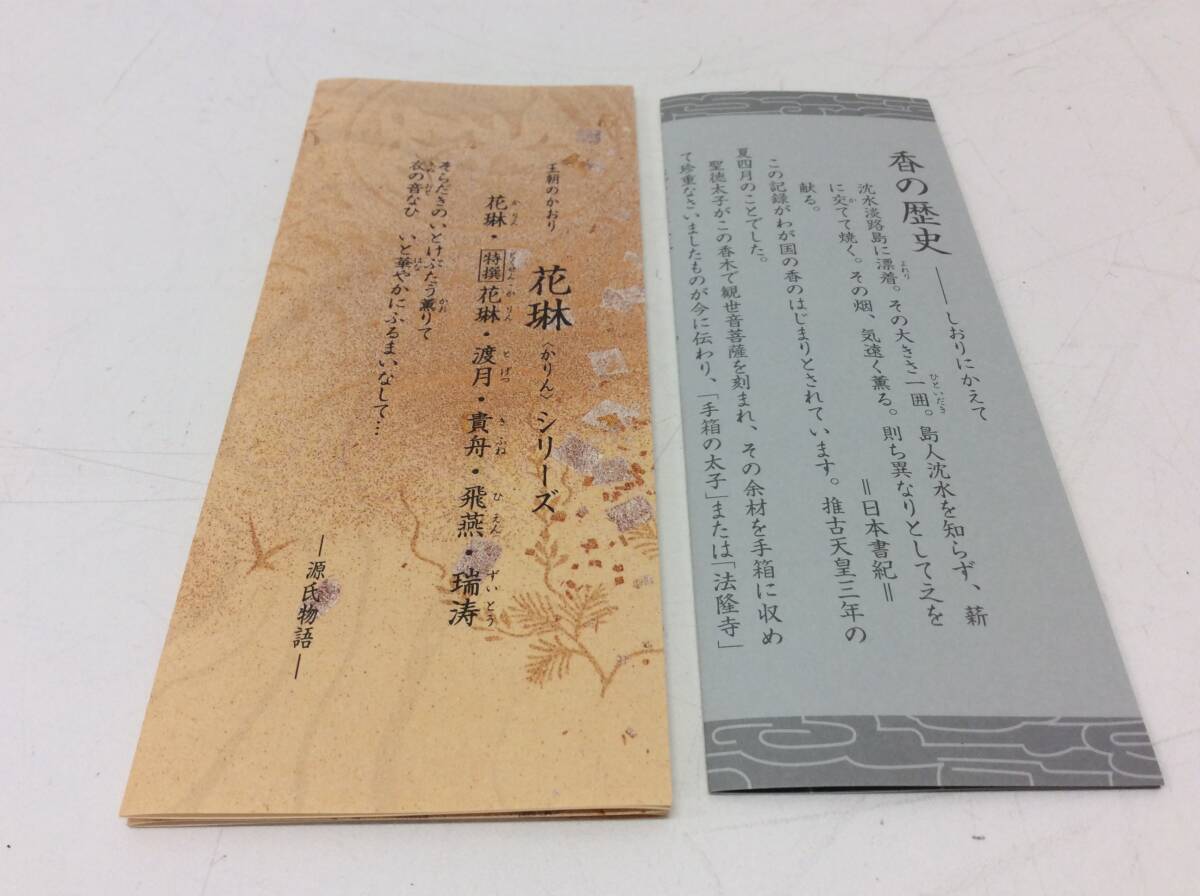 王朝のかおり
花琳〈かりん〉シリーズ
花琳・特撰花琳・渡月・貴舟・飛燕・瑞涛
かりん とくせん・かりん とげつ きふね ひえん ずいとう
そらだきのいとけぶたう薫りて
衣の音なひ いと華やかにふるまいなして…
―源氏物語―
香の歴史
――しおりにかえて
沈水淡路島に漂着。その大きさ一囲。島人沈水を知らず、薪
よれり ひといだき
に交てて焼く。その烟、気遠く薫る。則ち異なりとして之を
か
献る。
=日本書紀=
この記録がわが国の香のはじまりとされています。推古天皇三年の
夏四月のことでした。
聖徳太子がこの香木で観世音菩薩を刻まれ、その余材を手箱に収め
て珍重なさいましたものが今に伝わり、「手箱の太子」または「法隆寺」